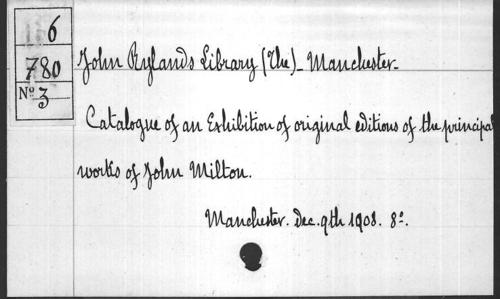 6
780
Nº 3
John Rylands Library (The)_ Manchester_
Catalogue of an Exhibition of original editions of the principal
works of John Milton.
Manchester. Dec. 9th 1908. 8º.